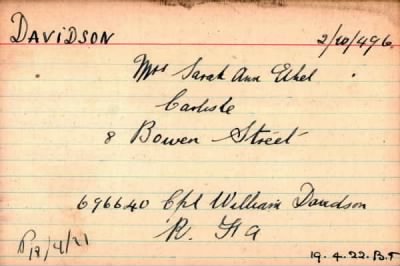 DAVIDSON 2/20/496.
Mrs Sarah Ann Ethel
Carlisle
8 Bowen Street
696640 Cpl William Davidson
R. F A
P18/4/21 19.4.22. B.T